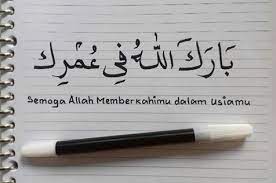 بَارَكَ اللهُ فِي عُمْرِك
Semoga Allah Memberkahimu dalam Usiamu